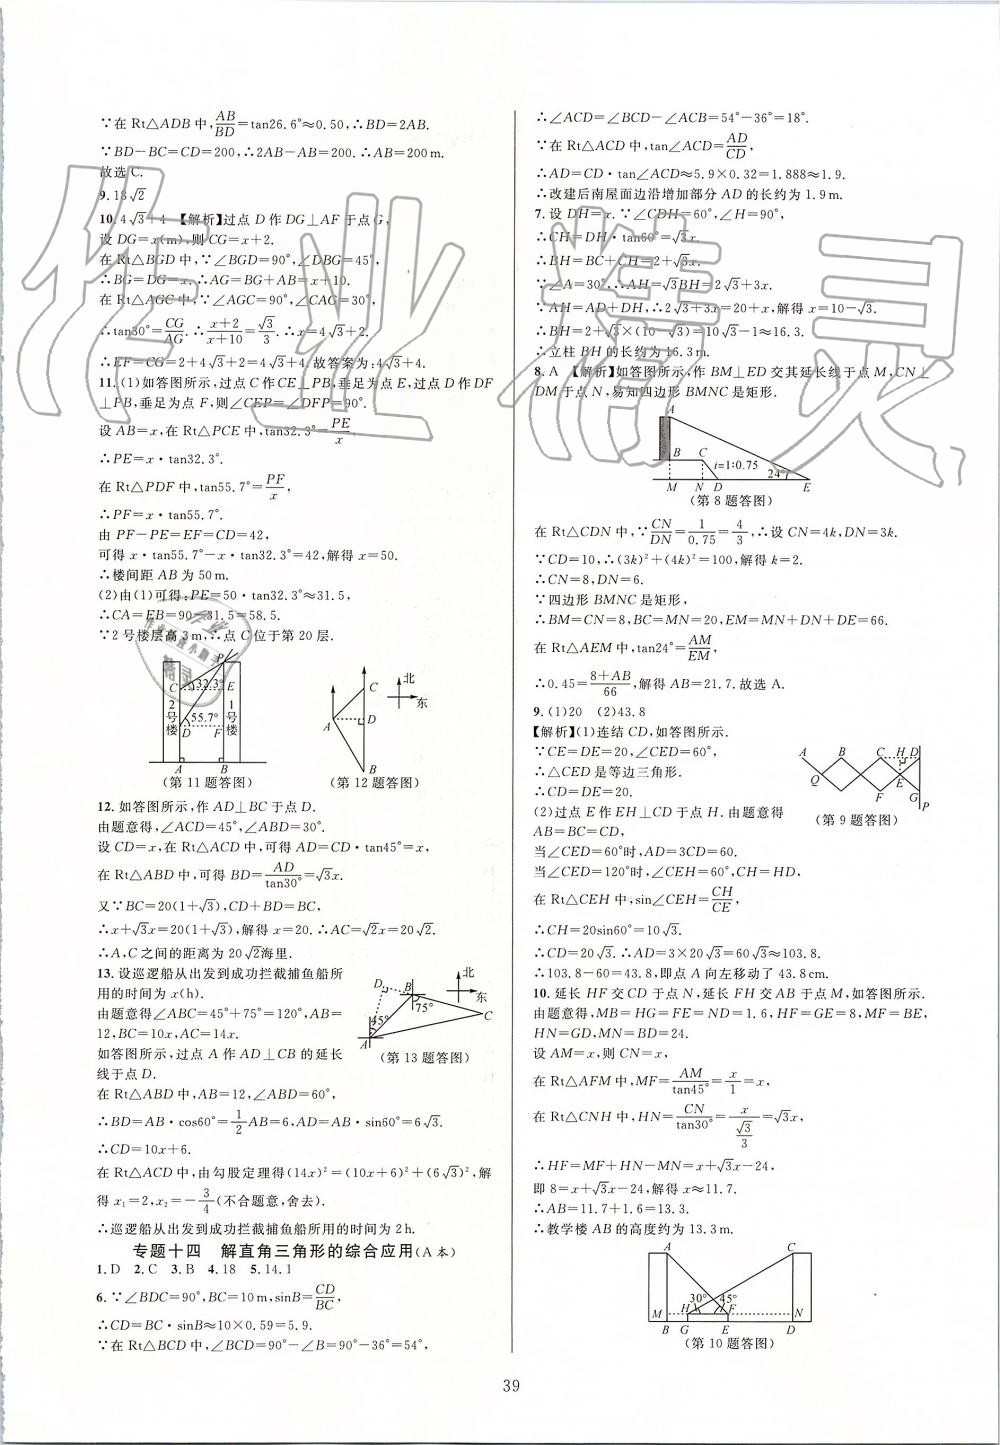 ∵在 Rt△ADB 中,AB/BD=tan26.6°≈0.50,∴BD=2AB.
∵BD-BC=CD=200,∴2AB-AB=200.∴AB=200 m.
故选 C.
9.18√2
10.4√3+4 【解析】过点 D 作 DG⊥AF 于点 G,
设 DG=x(m),则 CG=x+2.
在 Rt△BGD 中,∵∠BGD=90°,∠DBG=45°,
∴BG=DG=x.∴AG=BG+AB=x+10.
在 Rt△AGC 中,∵∠AGC=90°,∠CAG=30°,
∴tan30°=CG/AG.∴(x+2)/(x+10)=√3/3.∴x=4√3+2.
∴EF=CG=2+4√3+2=4√3+4.故答案为:4√3+4.
11.(1)如答图所示,过点 C 作 CE⊥PB,垂足为点 E,过点 D 作 DF
⊥PB,垂足为点 F,则∠CEP=∠DFP=90°.
设 AB=x,在 Rt△PCE 中,tan32.3°=PE/x
∴PE=x·tan32.3°.
在 Rt△PDF 中,tan55.7°=PF/x,
∴PF=x·tan55.7°.
由 PF-PE=EF=CD=42,
可得 x·tan55.7°-x·tan32.3°=42,解得 x=50.
∴楼间距 AB 为 50 m.
(2)由(1)可得:PE=50·tan32.3°≈31.5,
∴CA=EB=90-31.5=58.5.
∵2 号楼层高 3 m,∴点 C 位于第 20 层.
P
C 32.3° E
2号楼
1号楼
55.7°
D F
A B
(第 11 题答图)
C
北
东
A D
B
(第 12 题答图)
12.如答图所示,作 AD⊥BC 于点 D.
由题意得,∠ACD=45°,∠ABD=30°.
设 CD=x,在 Rt△ACD 中,可得 AD=CD·tan45°=x,
在 Rt△ABD 中,可得 BD=AD/tan30°=√3x.
又∵BC=20(1+√3),CD+BD=BC,
∴x+√3x=20(1+√3),解得 x=20.∴AC=√2x=20√2.
∴A,C 之间的距离为 20√2海里.
13.设巡逻船从出发到成功拦截捕鱼船所
用的时间为 x(h).
由题意得∠ABC=45°+75°=120°,AB=
12,BC=10x,AC=14x.
如答图所示,过点 A 作 AD⊥CB 的延长
线于点 D.
D B 北
75° 东
45° C
A
(第 13 题答图)
在 Rt△ABD 中,AB=12,∠ABD=60°,
∴BD=AB·cos60°=1/2AB=6,AD=AB·sin60°=6√3.
∴CD=10x+6.
在 Rt△ACD 中,由勾股定理得(14x)²=(10x+6)²+(6√3)²,解
得 x₁=2,x₂=-3/4(不合题意,舍去).
∴巡逻船从出发到成功拦截捕鱼船所用的时间为 2 h.
专题十四 解直角三角形的综合应用(A 本)
1.D 2.C 3.B 4.18 5.14.1
6.∵∠BDC=90°,BC=10 m,sinB=CD/BC,
∴CD=BC·sinB≈10×0.59=5.9.
∵在 Rt△BCD 中,∠BCD=90°-∠B=90°-36°=54°,
∴∠ACD=∠BCD-∠ACB=54°-36°=18°.
∵在 Rt△ACD 中,tan∠ACD=AD/CD,
∴AD=CD·tan∠ACD≈5.9×0.32=1.888≈1.9.
∴改建后南屋面边沿增加部分 AD 的长约为 1.9 m.
7.设 DH=x.∵∠CDH=60°,∠H=90°,
∴CH=DH·tan60°=√3x.
∴BH=BC+CH=2+√3x.
∵∠A=30°,∴AH=√3BH=2√3+3x.
∵AH=AD+DH,∴2√3+3x=20+x,解得 x=10-√3.
∴BH=2+√3×(10-√3)=10√3-1≈16.3.
∴立柱 BH 的长约为 16.3 m.
8.A 【解析】如答图所示,作 BM⊥ED 交其延长线于点 M,CN⊥
DM 于点 N,易知四边形 BMNC 是矩形.
A
B C i=1:0.75
24°
M N D E
(第 8 题答图)
在 Rt△CDN 中,∵CN/DN=1/0.75=4/3,∴设 CN=4k,DN=3k.
∵CD=10,∴(3k)²+(4k)²=100,解得 k=2.
∴CN=8,DN=6.
∵四边形 BMNC 是矩形,
∴BM=CN=8,BC=MN=20,EM=MN+DN+DE=66.
在 Rt△AEM 中,tan24°=AM/EM,
∴0.45=(8+AB)/66,解得 AB=21.7.故选 A.
9.(1)20 (2)43.8
【解析】(1)连结 CD,如答图所示.
∵CE=DE=20,∠CED=60°,
∴△CED 是等边三角形.
∴CD=DE=20.
(2)过点 E 作 EH⊥CD 于点 H.由题意得
AB=BC=CD,
A B C H D
Q E
F G
P
(第 9 题答图)
当∠CED=60°时,AD=3CD=60.
当∠CED=120°时,∠CEH=60°,CH=HD,
在 Rt△CEH 中,sin∠CEH=CH/CE,
∴CH=20sin60°=10√3.
∴CD=20√3.∴AD=3×20√3=60√3≈103.8.
∴103.8-60=43.8,即点 A 向左移动了 43.8 cm.
10.延长 HF 交 CD 于点 N,延长 FH 交 AB 于点 M,如答图所示.
由题意得,MB=HG=FE=ND=1.6,HF=GE=8,MF=BE,
HN=GD,MN=BD=24.
设 AM=x,则 CN=x,
在 Rt△AFM 中,MF=AM/tan45°=x/1=x,
在 Rt△CNH 中,HN=CN/tan30°=x/(√3/3)=√3x,
∴HF=MF+HN-MN=x+√3x-24,
即 8=x+√3x-24,解得 x≈11.7.
∴AB=11.7+1.6=13.3.
∴教学楼 AB 的高度约为 13.3 m.
A C
30° 45°
M H F N
B G E D
(第 10 题答图)
39
作业精灵